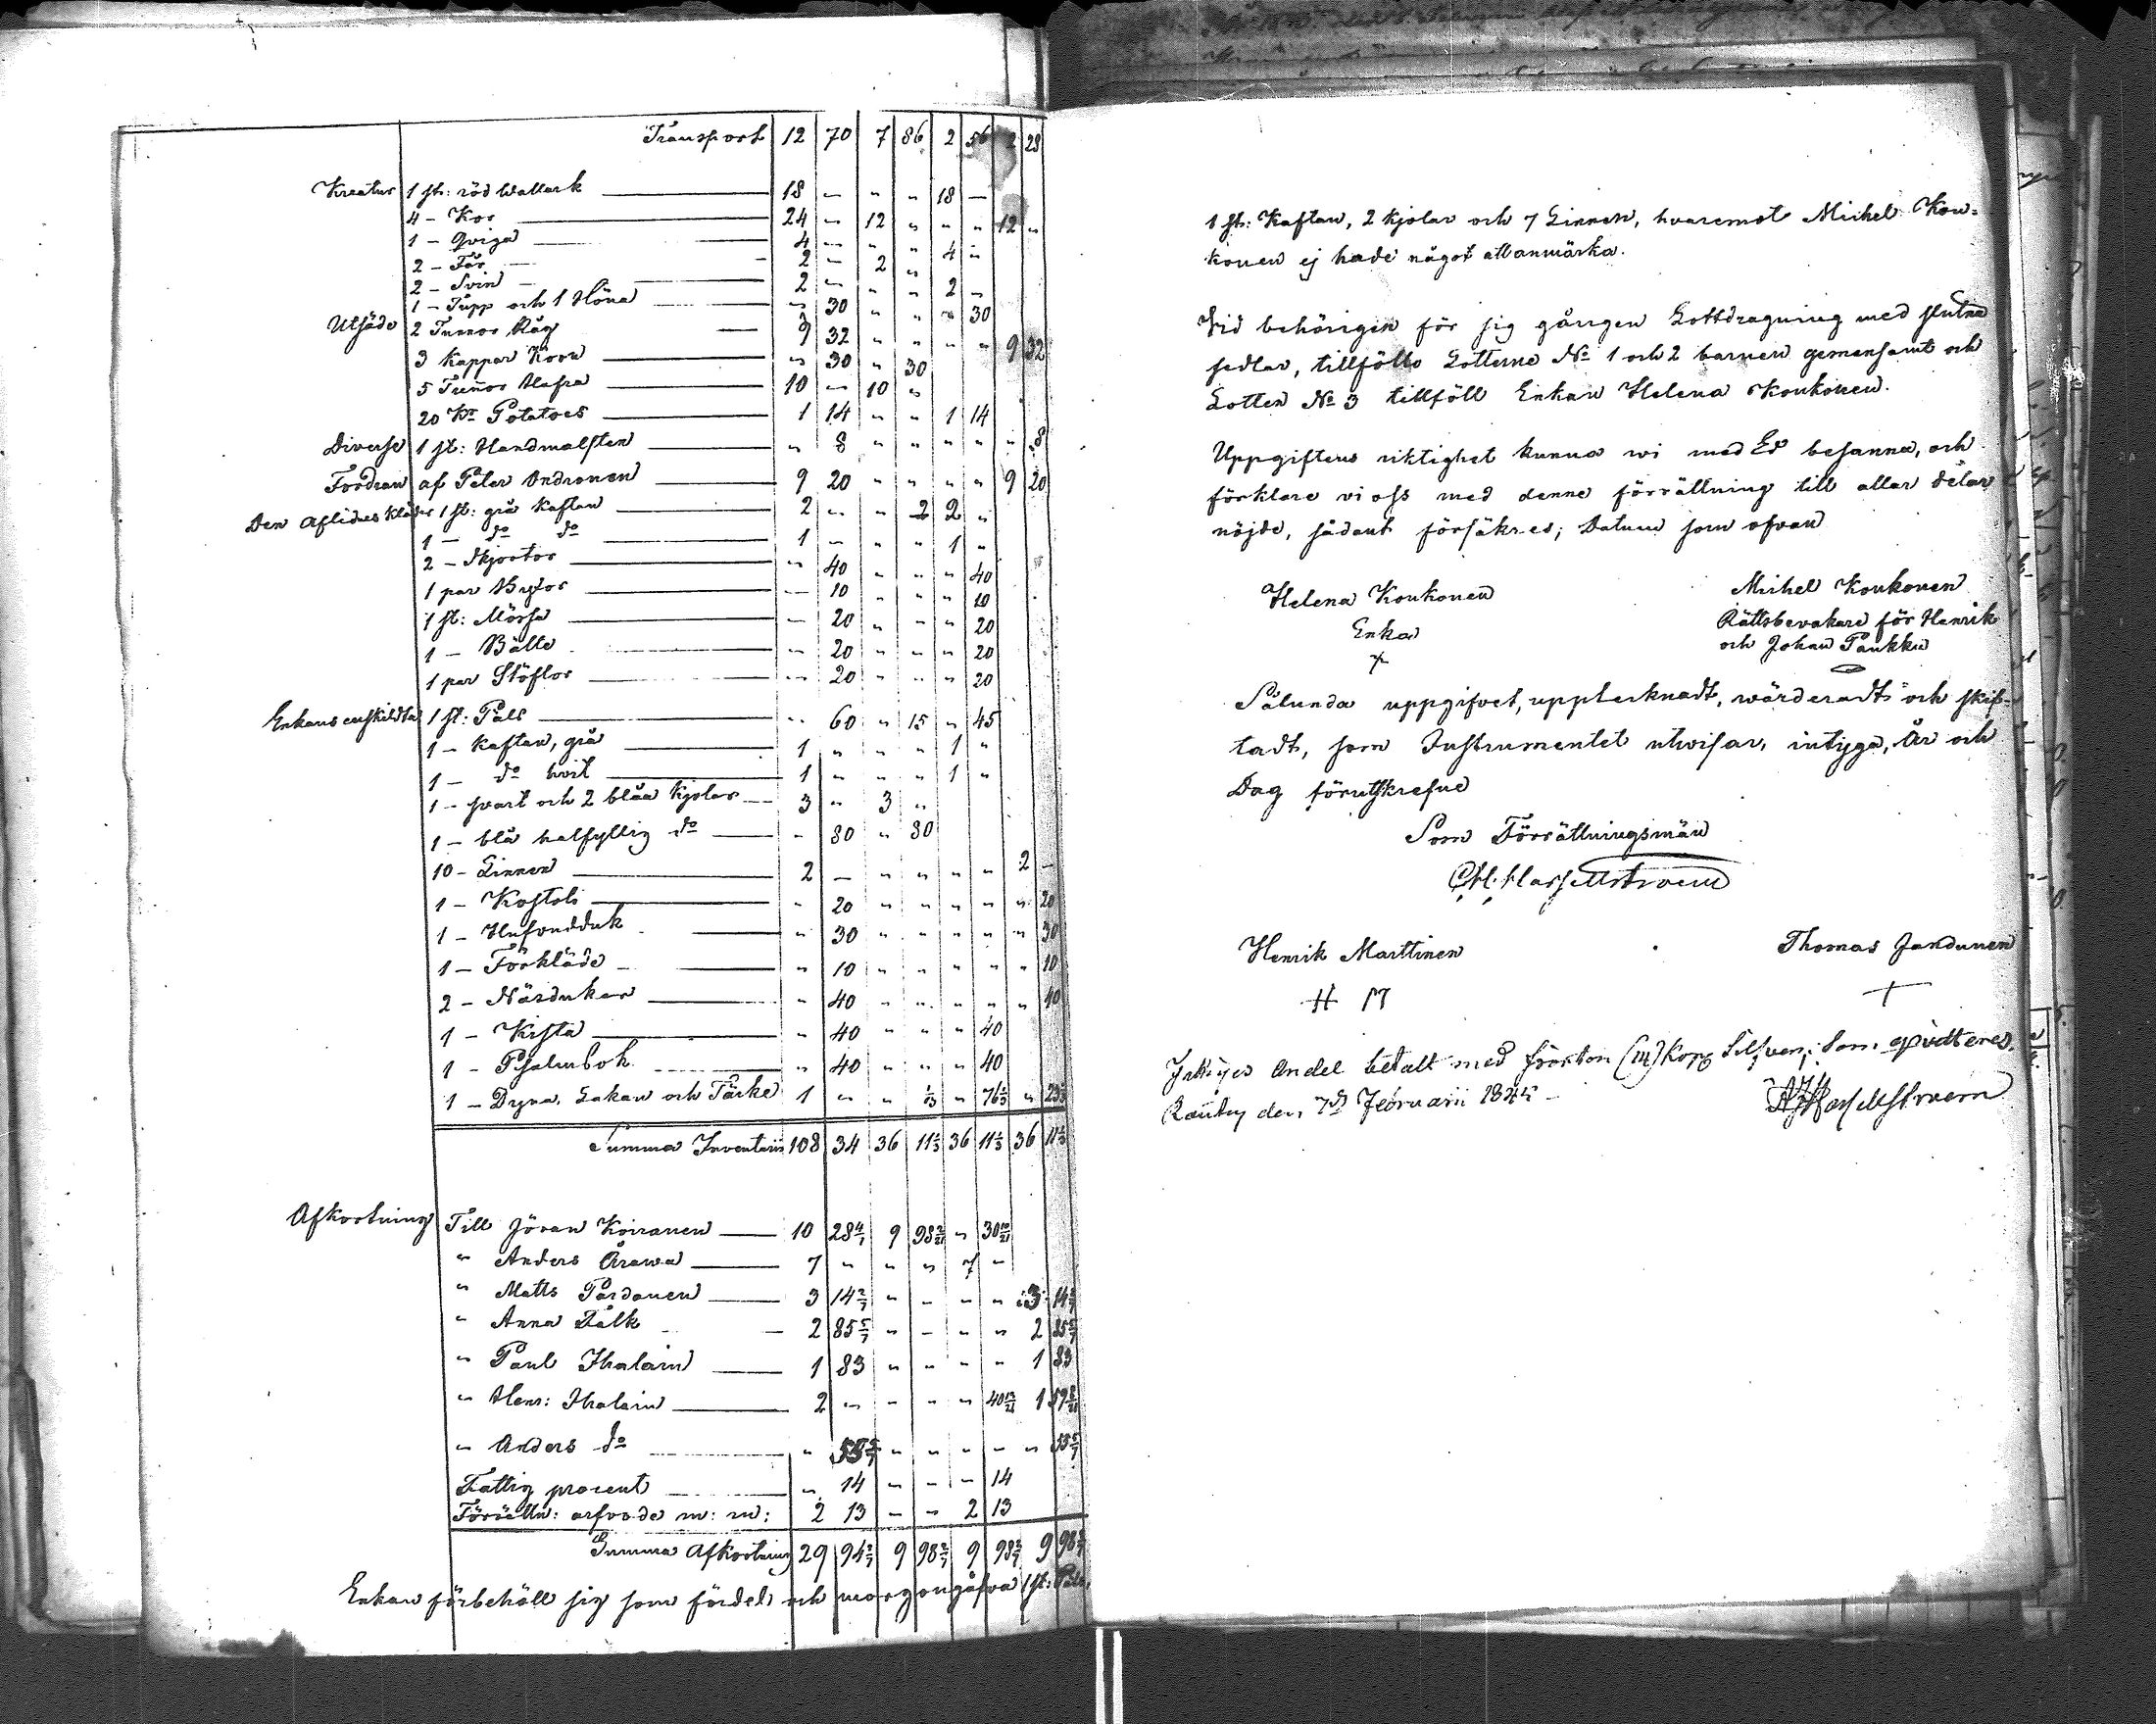 Transport 12 70 7 86 2 56 2 28
Kreatur 1 st: röd Wallack 18 – " " 18 –
4 – Kor 24 – 12 " " " 12 "
1 – Qviga 4 – " " 4 –
2 – Får 2 – 2 "
2 – Svin 2 – " " 2 –
1 – Tupp och 1 Höna – 30 " " " 30
Utsäde 2 Tunnor Råg 9 32 " " " " 9 32
3 Kappar Korn " 30 " 30
5 Tunnor Hafra 10 – 10 "
20 Kr Potatoes 1 14 " " 1 14
Diverse 1 st: Handmalsten " 8 " " " " " 8
Fordran af Peter Andronen 9 20 " " " " 9 20
Den Aflidnes kläder 1 st: grå Kaftan 2 " " 2 "
1 – do do 1 – " " 1 "
2 – Skjortor " 40 " " " 40
1 par Byxor – 10 " " " 10
1 st: Mössa – 20 " " " 20
1 – Bälte – 20 " " " 20
1 par Stöflor – 20 " " " 20
Enkans enskildta 1 st: Päls " 60 " 15 " 45
1 – Kaftan, grå 1 " " " 1 "
1 – do hvit 1 " " " 1 "
1 – svart och 2 blåa Kjolar 3 " 3 "
1 – blå halfyllig do – 80 " 80
10 – Linnen 2 – " " " " 2 –
1 – " 20 " " " " " 20
1 – Hufvudduk " 30 " " " " " 30
1 – Förkläde " 10 " " " " " 10
2 – Näsdukar " 40 " " " " " 40
1 – Kista " 40 " " " 40
1 – Psalmbok " 40 " " " 40
1 – Dyna, Lakan och Täcke 1 " " 1/3 " 76 1/3 " 23 1/3
Summa Inventarii 108 34 36 11 1/3 36 11 1/3 36 11 1/3
Afkortning Till Jöran Koiranen 10 28 4/7 9 98 2/21 " 30 10/21
" Anders Årawa 7 " " " 7 "
" Matts Pardanen 3 14 2/7 " " " " 3 14 2/7
" Anna Falk 2 85 5/7 " – " " 2 85 5/7
" Paul Ihalain 1 83 " " " " 1 83
" Henr: Ihalain 2 " " " " 40 13/21 1 59 8/21
" Anders do " 55 5/7 " " " " " 55 5/7
Fattig procent " 14 – – – 14
Förrättn: arfvode m: m: 2 13 – – 2 13
Summa Afkortning 29 94 2/7 9 98 2/7 9 98 2/7 9 98 2/7
Enkan förbehöll sig som fördel och morgongåfva 1 st: Päls,
1 st: Kaftan, 2 kjolar och 7 Linnen, hvaremot Michel Kou=
konen ej hade något att anmärka.
Vid behörigen för sig gången Lottdragning med slutna
sedlar, tillföllo Lotterne No 1 och 2 barnen gemensamt och
Lotten No 3 tillföll Enkan Helena Koukonen.
Uppgiftens riktighet kunna wi med Ed besanna, och
förklare vi oss med denne förrättning till allar delar
nöjde, sådant försäkras; Datum som ofvan
Helena Koukonen Michel Koukonen
Enka Rättsbevakare för Henrik
och Johan Paukku
Sålunda uppgifvet, upptecknadt, wärderadt och skif-
tadt, som Instrumentet utwisar, intyga, År och
Dag förutskrefne
Som Förrättningsmän
Hassellstroem
Henrik Marttinen Thomas Jandunen
H M +
Fattiges Andel betalt med fjorton (14) Kop Silfver; som qvitteres.
Rautu den 7de Februarii 1845 –
Hassellstroem